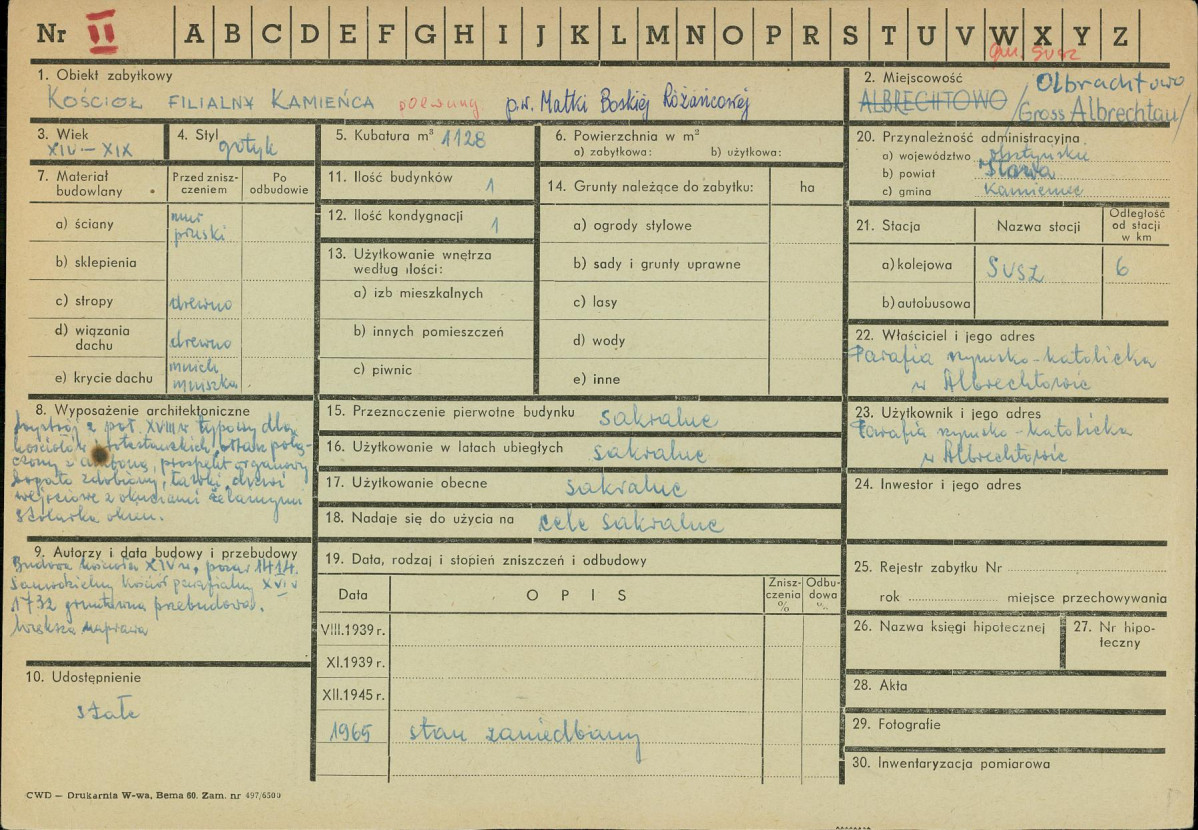 Nr II A B C D E F G H I J K L M N O P R S T U V W X Y Z
gm. Susz
1. Obiekt zabytkowy
KOŚCIÓŁ FILIALNY KAMIEŃCA p.w. Matki Boskiej Różańcowej
2. Miejscowość Olbrachtowo
ALBRECHTOWO /Gross Albrechtau/
3. Wiek
XIV – XIX
4. Styl
gotyk
5. Kubatura m³ 1128
6. Powierzchnia w m²
a) zabytkowa: b) użytkowa:
7. Materiał budowlany
Przed znisz-
czeniem
Po
odbudowie
a) ściany mur
pruski
b) sklepienia
c) stropy drewno
d) wiązania
dachu drewno
e) krycie dachu mnich
mniszka
8. Wyposażenie architektoniczne
Wystrój z poł. XVIII w typowy dla
kościołów protestanckich, ołtarz połą-
czony z amboną, prospekt organowy
bogato zdobiony, ławki, drzwi
wejściowe z okuciami żelaznymi
stolarka okien.
9. Autorzy i data budowy i przebudowy
Budowa kościoła XIV w, pożar 1414.
Samodzielny kościół parafialny XVI w
1732 gruntowna przebudowa.
większa naprawa
10. Udostępnienie
stałe
11. Ilość budynków 1
12. Ilość kondygnacji 1
13. Użytkowanie wnętrza
według ilości:
a) izb mieszkalnych
b) innych pomieszczeń
c) piwnic
14. Grunty należące do zabytku: ha
a) ogrody stylowe
b) sady i grunty uprawne
c) lasy
d) wody
e) inne
15. Przeznaczenie pierwotne budynku sakralne
16. Użytkowanie w latach ubiegłych sakralne
17. Użytkowanie obecne sakralne
18. Nadaje się do użycia na cele sakralne
19. Data, rodzaj i stopień zniszczeń i odbudowy
Data OPIS Znisz-
czenia
% Odbu-
dowa
%
VIII.1939 r.
XI.1939 r.
XII.1945 r.
1965 stan zaniedbany
20. Przynależność administracyjna
a) województwo olsztyńskie
b) powiat Iława
c) gmina Kamieniec
21. Stacja Nazwa stacji Odległość
od stacji
w km
a) kolejowa SUSZ 6
b) autobusowa
22. Właściciel i jego adres
Parafia rzymsko-katolicka
w Albrechtowie
23. Użytkownik i jego adres
Parafia rzymsko-katolicka
w Albrechtowie
24. Inwestor i jego adres
25. Rejestr zabytku Nr
rok miejsce przechowywania
26. Nazwa księgi hipotecznej
27. Nr hipo-
teczny
28. Akta
29. Fotografie
30. Inwentaryzacja pomiarowa
CWD — Drukarnia W-wa, Bema 60. Zam. nr 497/6500